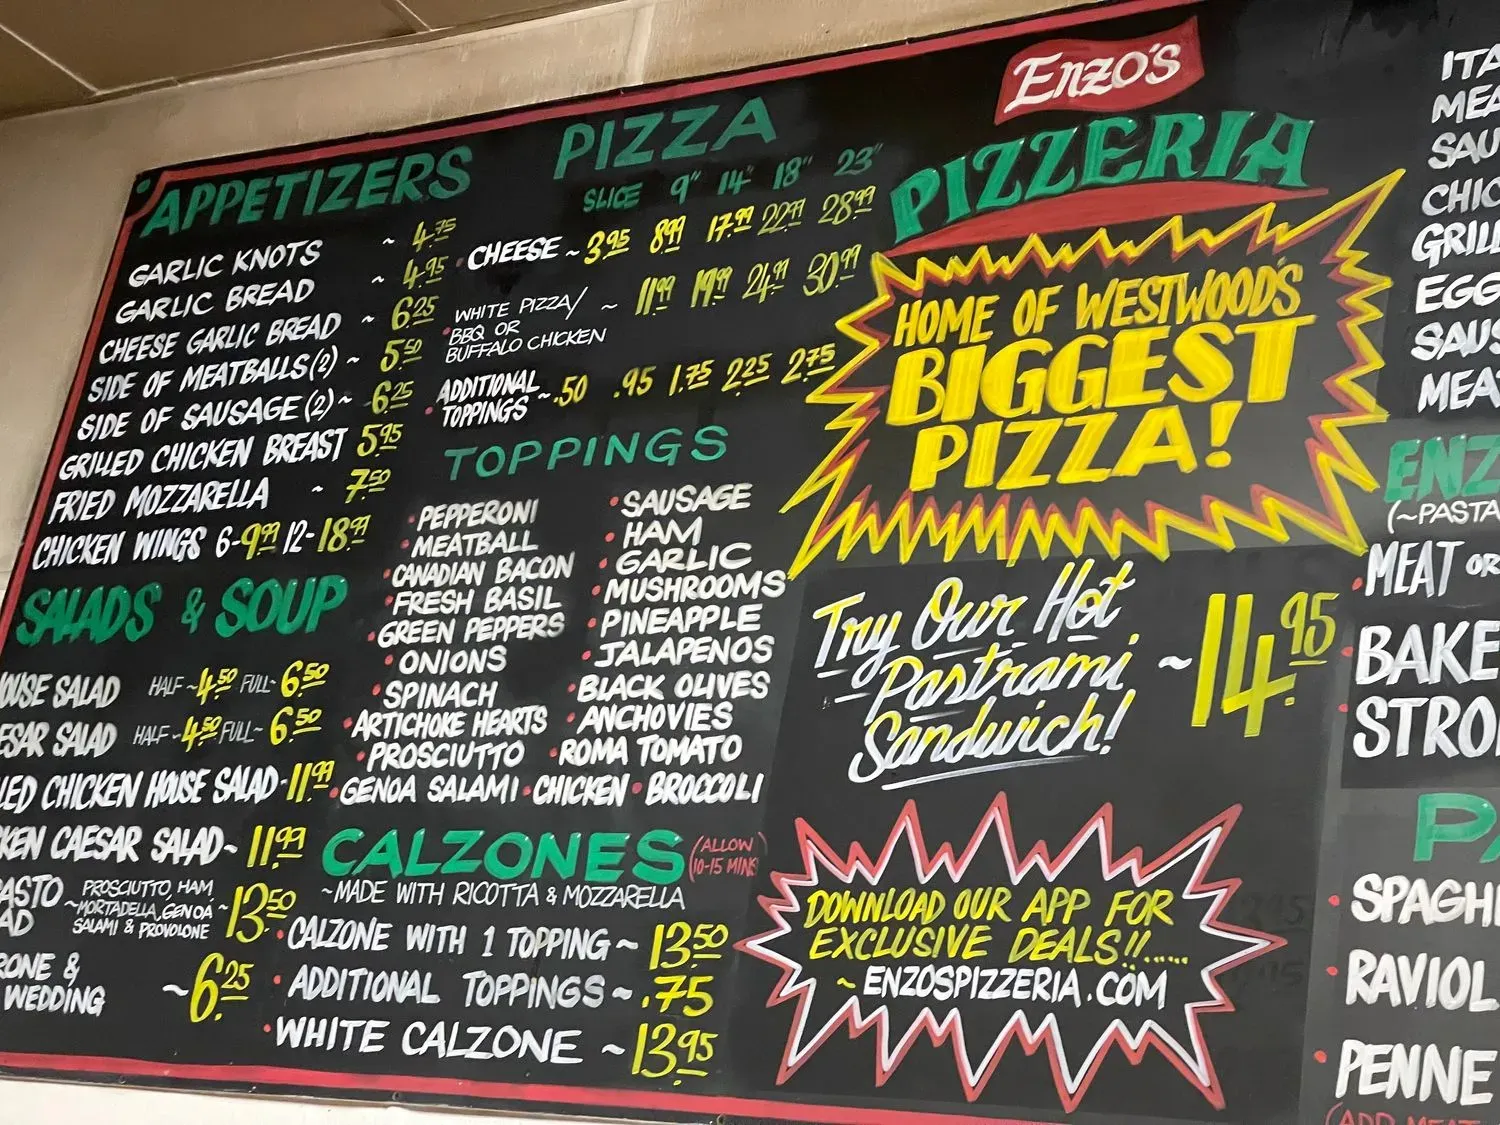 APPETIZERS
GARLIC KNOTS ~ 4.75
GARLIC BREAD ~ 4.95
CHEESE GARLIC BREAD ~ 6.25
SIDE OF MEATBALLS (2) ~ 5.50
SIDE OF SAUSAGE (2) ~ 6.25
GRILLED CHICKEN BREAST 5.95
FRIED MOZZARELLA ~ 7.50
CHICKEN WINGS 6-9.99 12-18.99
SALADS & SOUP
OUSE SALAD HALF ~ 4.50 FULL ~ 6.50
ESAR SALAD HALF ~ 4.50 FULL ~ 6.50
LED CHICKEN HOUSE SALAD - 11.99
KEN CAESAR SALAD ~ 11.99
ASTO
AD
~ PROSCIUTTO, HAM,
MORTADELLA, GENOA
SALAMI & PROVOLONE
~ 13.50
RONE &
WEDDING
~ 6.25
PIZZA
SLICE 9" 14" 18" 23"
• CHEESE ~ 3.95 8.99 17.99 22.99 28.99
• WHITE PIZZA/
BBQ OR
BUFFALO CHICKEN
~ 11.99 19.99 24.99 30.99
• ADDITIONAL
TOPPINGS
~ .50 .95 1.75 2.25 2.75
TOPPINGS
• PEPPERONI
• MEATBALL
• CANADIAN BACON
• FRESH BASIL
• GREEN PEPPERS
• ONIONS
• SPINACH
• ARTICHOKE HEARTS
• PROSCIUTTO
• SAUSAGE
• HAM
• GARLIC
• MUSHROOMS
• PINEAPPLE
• JALAPENOS
• BLACK OLIVES
• ANCHOVIES
• ROMA TOMATO
• GENOA SALAMI • CHICKEN • BROCCOLI
CALZONES (ALLOW
10-15 MINS
~ MADE WITH RICOTTA & MOZZARELLA
• CALZONE WITH 1 TOPPING ~ 13.50
• ADDITIONAL TOPPINGS ~ .75
• WHITE CALZONE ~ 13.95
Enzo's
PIZZERIA
HOME OF WESTWOOD'S
BIGGEST
PIZZA!
Try Our Hot
Pastrami
Sandwich!
~ 14.95
DOWNLOAD OUR APP FOR
EXCLUSIVE DEALS!!.....
~ ENZOSPIZZERIA.COM
ITA
MEA
SAU
CHIC
GRILL
EGG
SAUS
MEAT
ENZ
(~PASTA
• MEAT OR
• BAKE
• STRO
PA
• SPAGH
• RAVIOL
• PENNE
(ADD MEAT